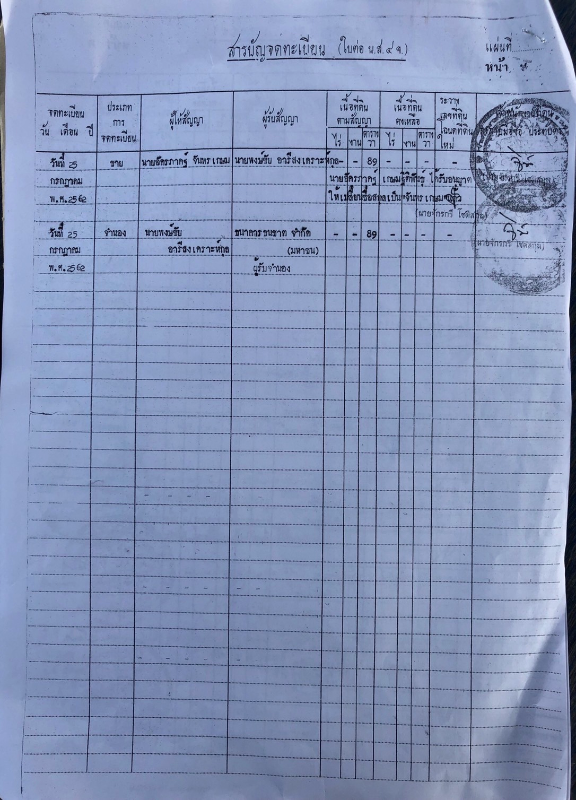 สารบัญจดทะเบียน (ใบต่อ น.ส.๔ จ.)
แผ่นที่
หน้า
จดทะเบียน วัน เดือน ปี
ประเภท การ จดทะเบียน
ผู้ให้สัญญา
ผู้รับสัญญา
เนื้อที่ดิน ตามสัญญา
ไร่ งาน ตาราง วา
เนื้อที่ดิน คงเหลือ
ไร่ งาน ตาราง วา
ระวาง เลขที่ดิน โฉนดที่ดิน ใหม่
วันที่ 25 ขาย นายอัครภาคฐ์ จันทร เกษม นายพงษ์ชัย อารีสงเคราะห์กุล - - 89 - - - -
กรกฎาคม นายอัครภาคฐ์ ได้รับอนุญาต
พ.ศ.2562 ให้เปลี่ยนชื่อสกุลเป็น จันทร เกษม แล้ว
วันที่ 25 จำนอง นายพงษ์ชัย ธนาคารธนชาต จำกัด - - 89 - - - -
กรกฎาคม อารีสงเคราะห์กุล (มหาชน)
พ.ศ.2562 ผู้รับจำนอง